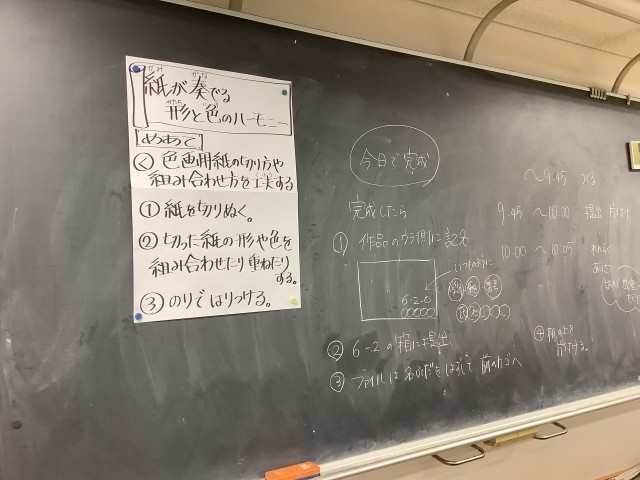 紙が奏でる
かみ かな
形と色のハーモニー
かたち
めあて
く 色画用紙の切り方や
組み合わせ方を工夫する
① 紙を切りぬく。
② 切った紙の形や色を
組み合わせたり重ねたり
する。
③ のりではりつける。
今日で完成
完成したら
① 作品のウラ側に記名
いつものように
6-2-0
② 6-2の箱に提出
③ ファイルは名ふだをはずして 前のカゴへ
~9:45
9:45 ~10:00 提出
10:00 ~10:05
④ 机の上を
片付ける。